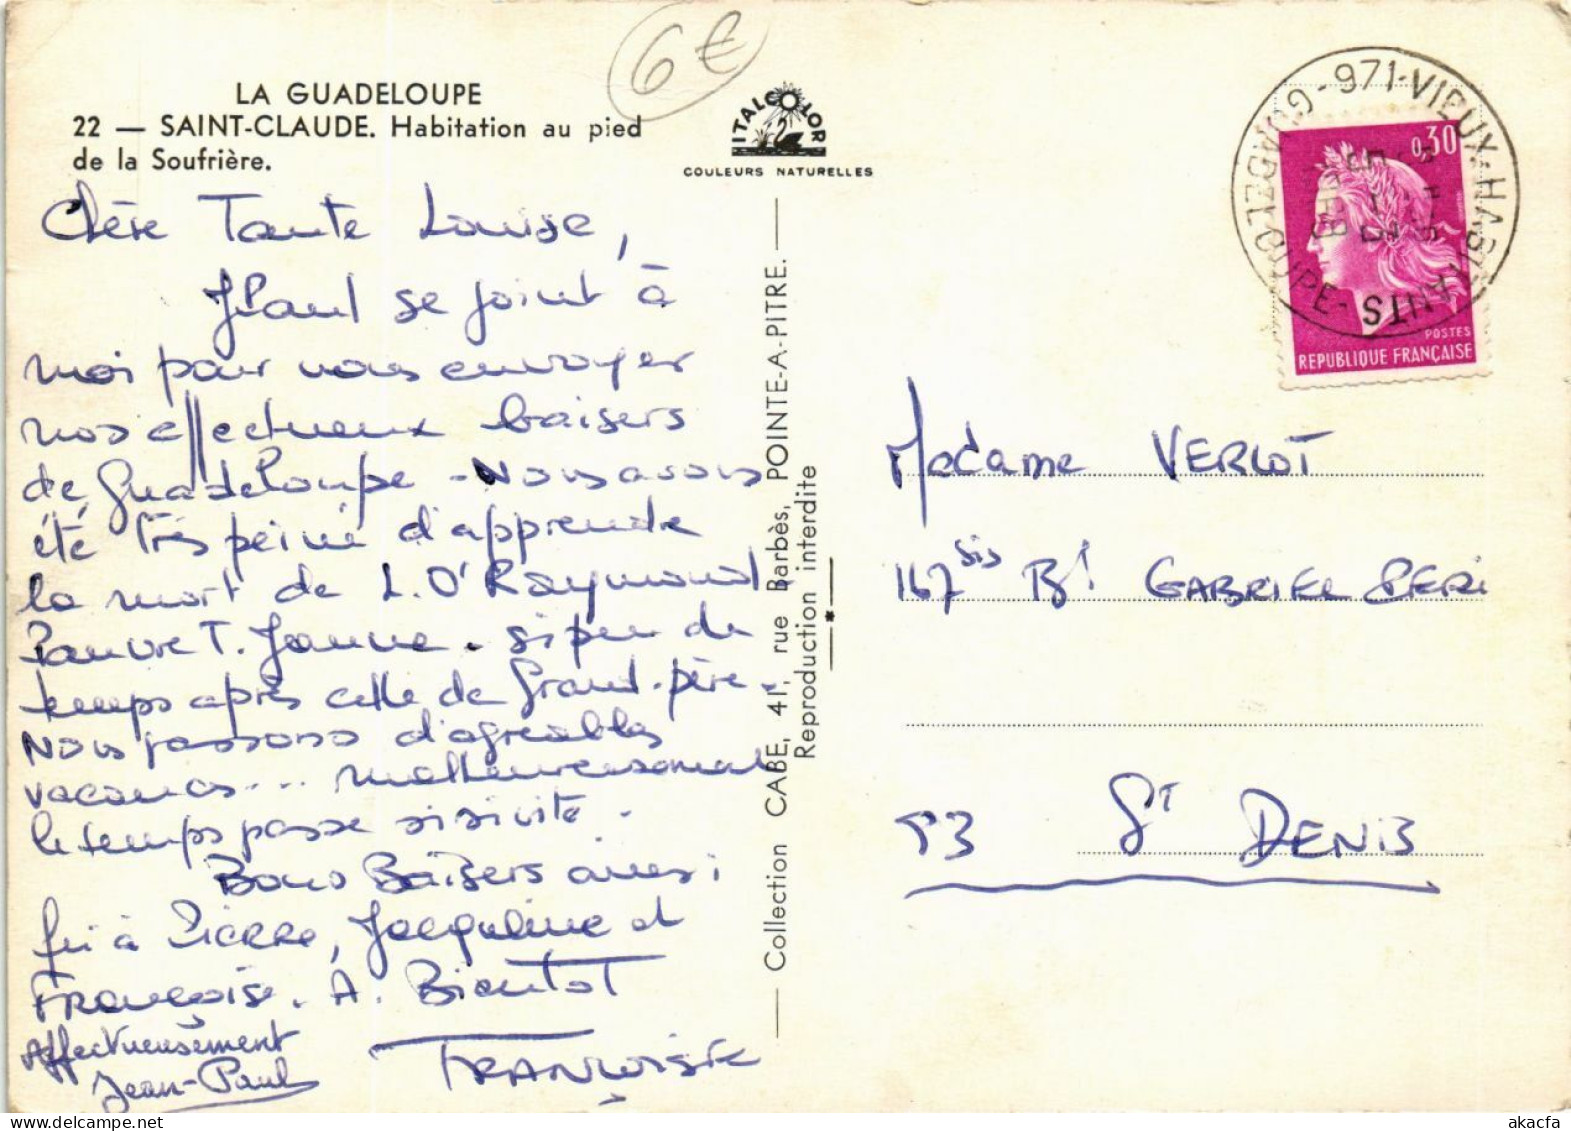 6€
LA GUADELOUPE
22 — SAINT-CLAUDE. Habitation au pied
de la Soufrière.
ITALCOLOR
COULEURS NATURELLES
Chère Tante Louise,
JPaul se joint à
moi pour vous envoyer
nos affectueux baisers
de Guadeloupe - Nous avons
été très peiné d'apprendre
la mort de L. O' Raymond
Pauvre T. Jeanne. si peu de
temps après celle de Grand-père.
Nous passons d'agréables
vacances... malheureusement
le temps passe si vite.
Bons Baisers ainsi
qu'à Pierre, Jacqueline et
Françoise. A. Bientôt
Affectueusement
Jean-Paul
FRANÇOISE
Collection CABE, 41, rue Barbès, POINTE-A-PITRE.
Reproduction interdite
971-VIEUX-HABITANTS
GUADELOUPE
0,30
POSTES
REPUBLIQUE FRANÇAISE
Madame VERLOT
167 bis Bd GABRIEL PERI
93 St DENIS
akacfa